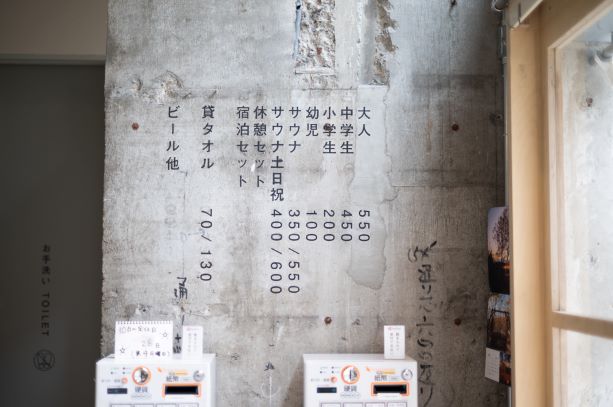 大人 550
中学生 450
小学生 200
幼児 100
サウナ 350/550
サウナ土日祝 400/600
休憩セット
宿泊セット
貸タオル 70/130
ビール他
お手洗い TOILET
硬貨
紙幣
硬貨
紙幣